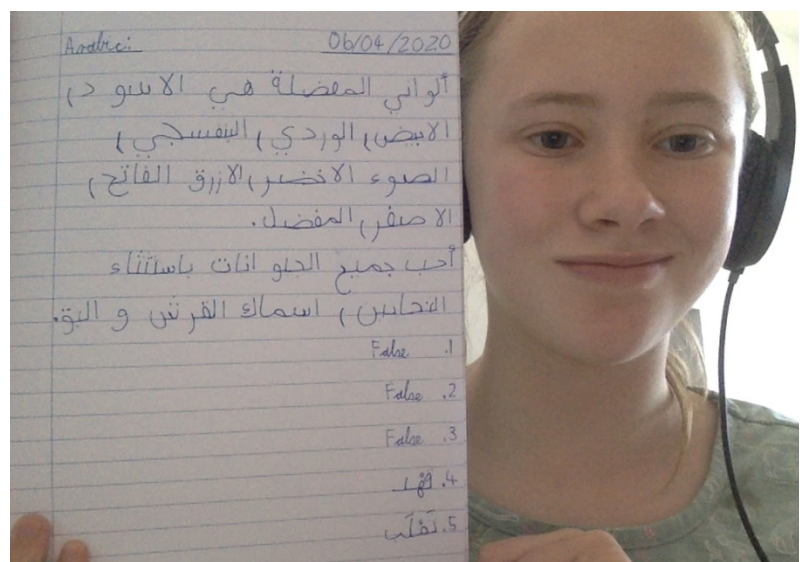 Arabic: 06/04/2020
ألواني المفضلة هي الاسو د،
الابيض، الوردي، البنفسجي،
الضوء الاخضر، الازرق الفاتح،
الا صفر، المفضل.
أحب جميع الحيو انات باستثناء
اسماك القرش و البق.
1. False
2. False
3. False
4. فهد